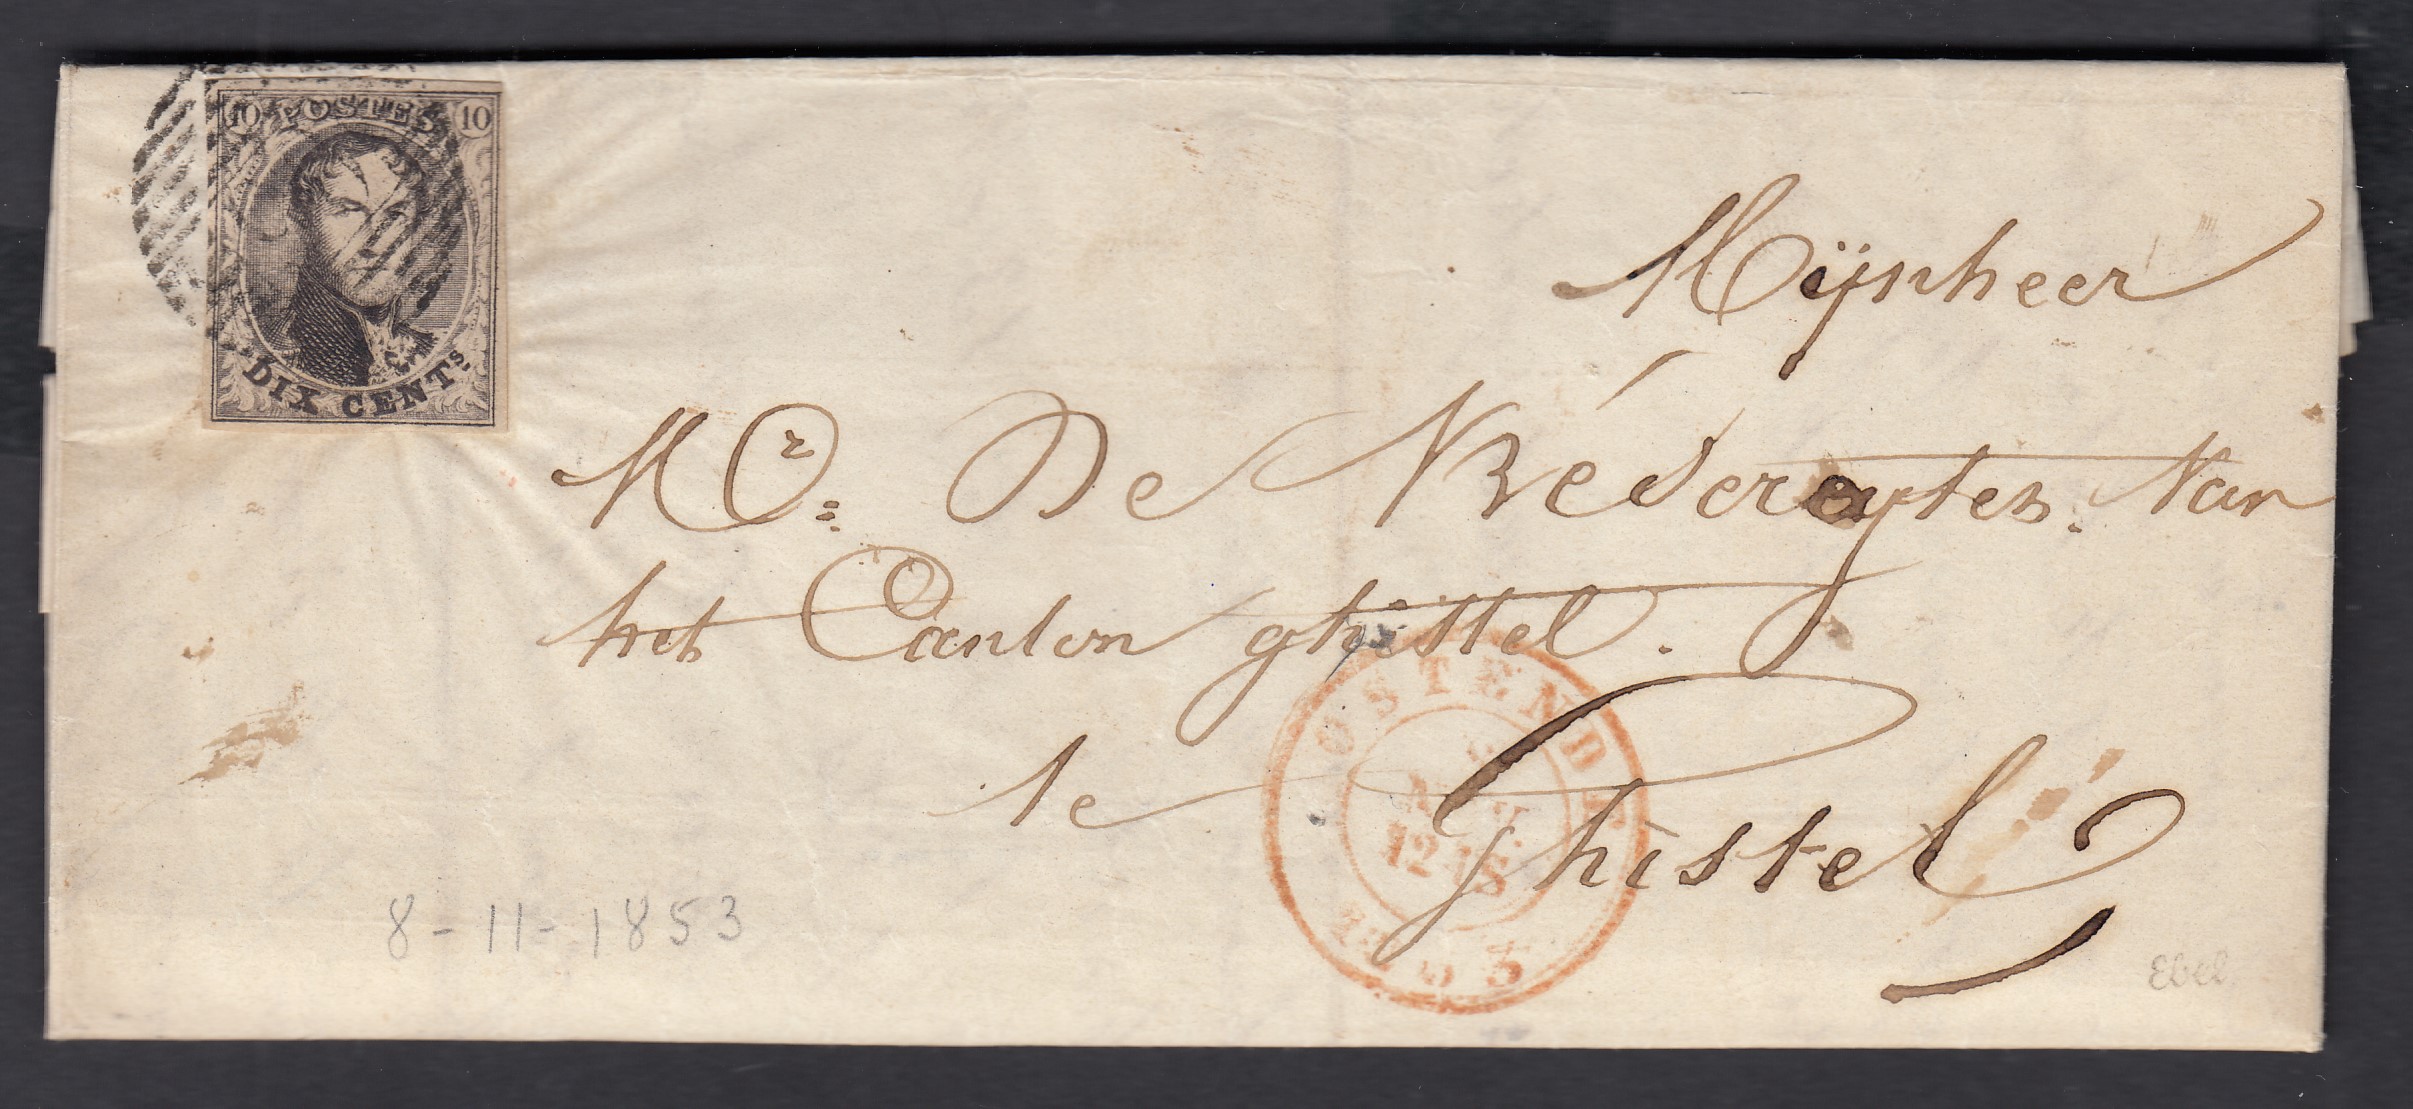 10 POSTES 10
DIX CENTS.
Mijnheer
Mr: De Vréderegter. Van
het Canton ghistel.
te Ghistel
OSTENDE
NOV.
12-S
1853
8-11-1853
Ebel